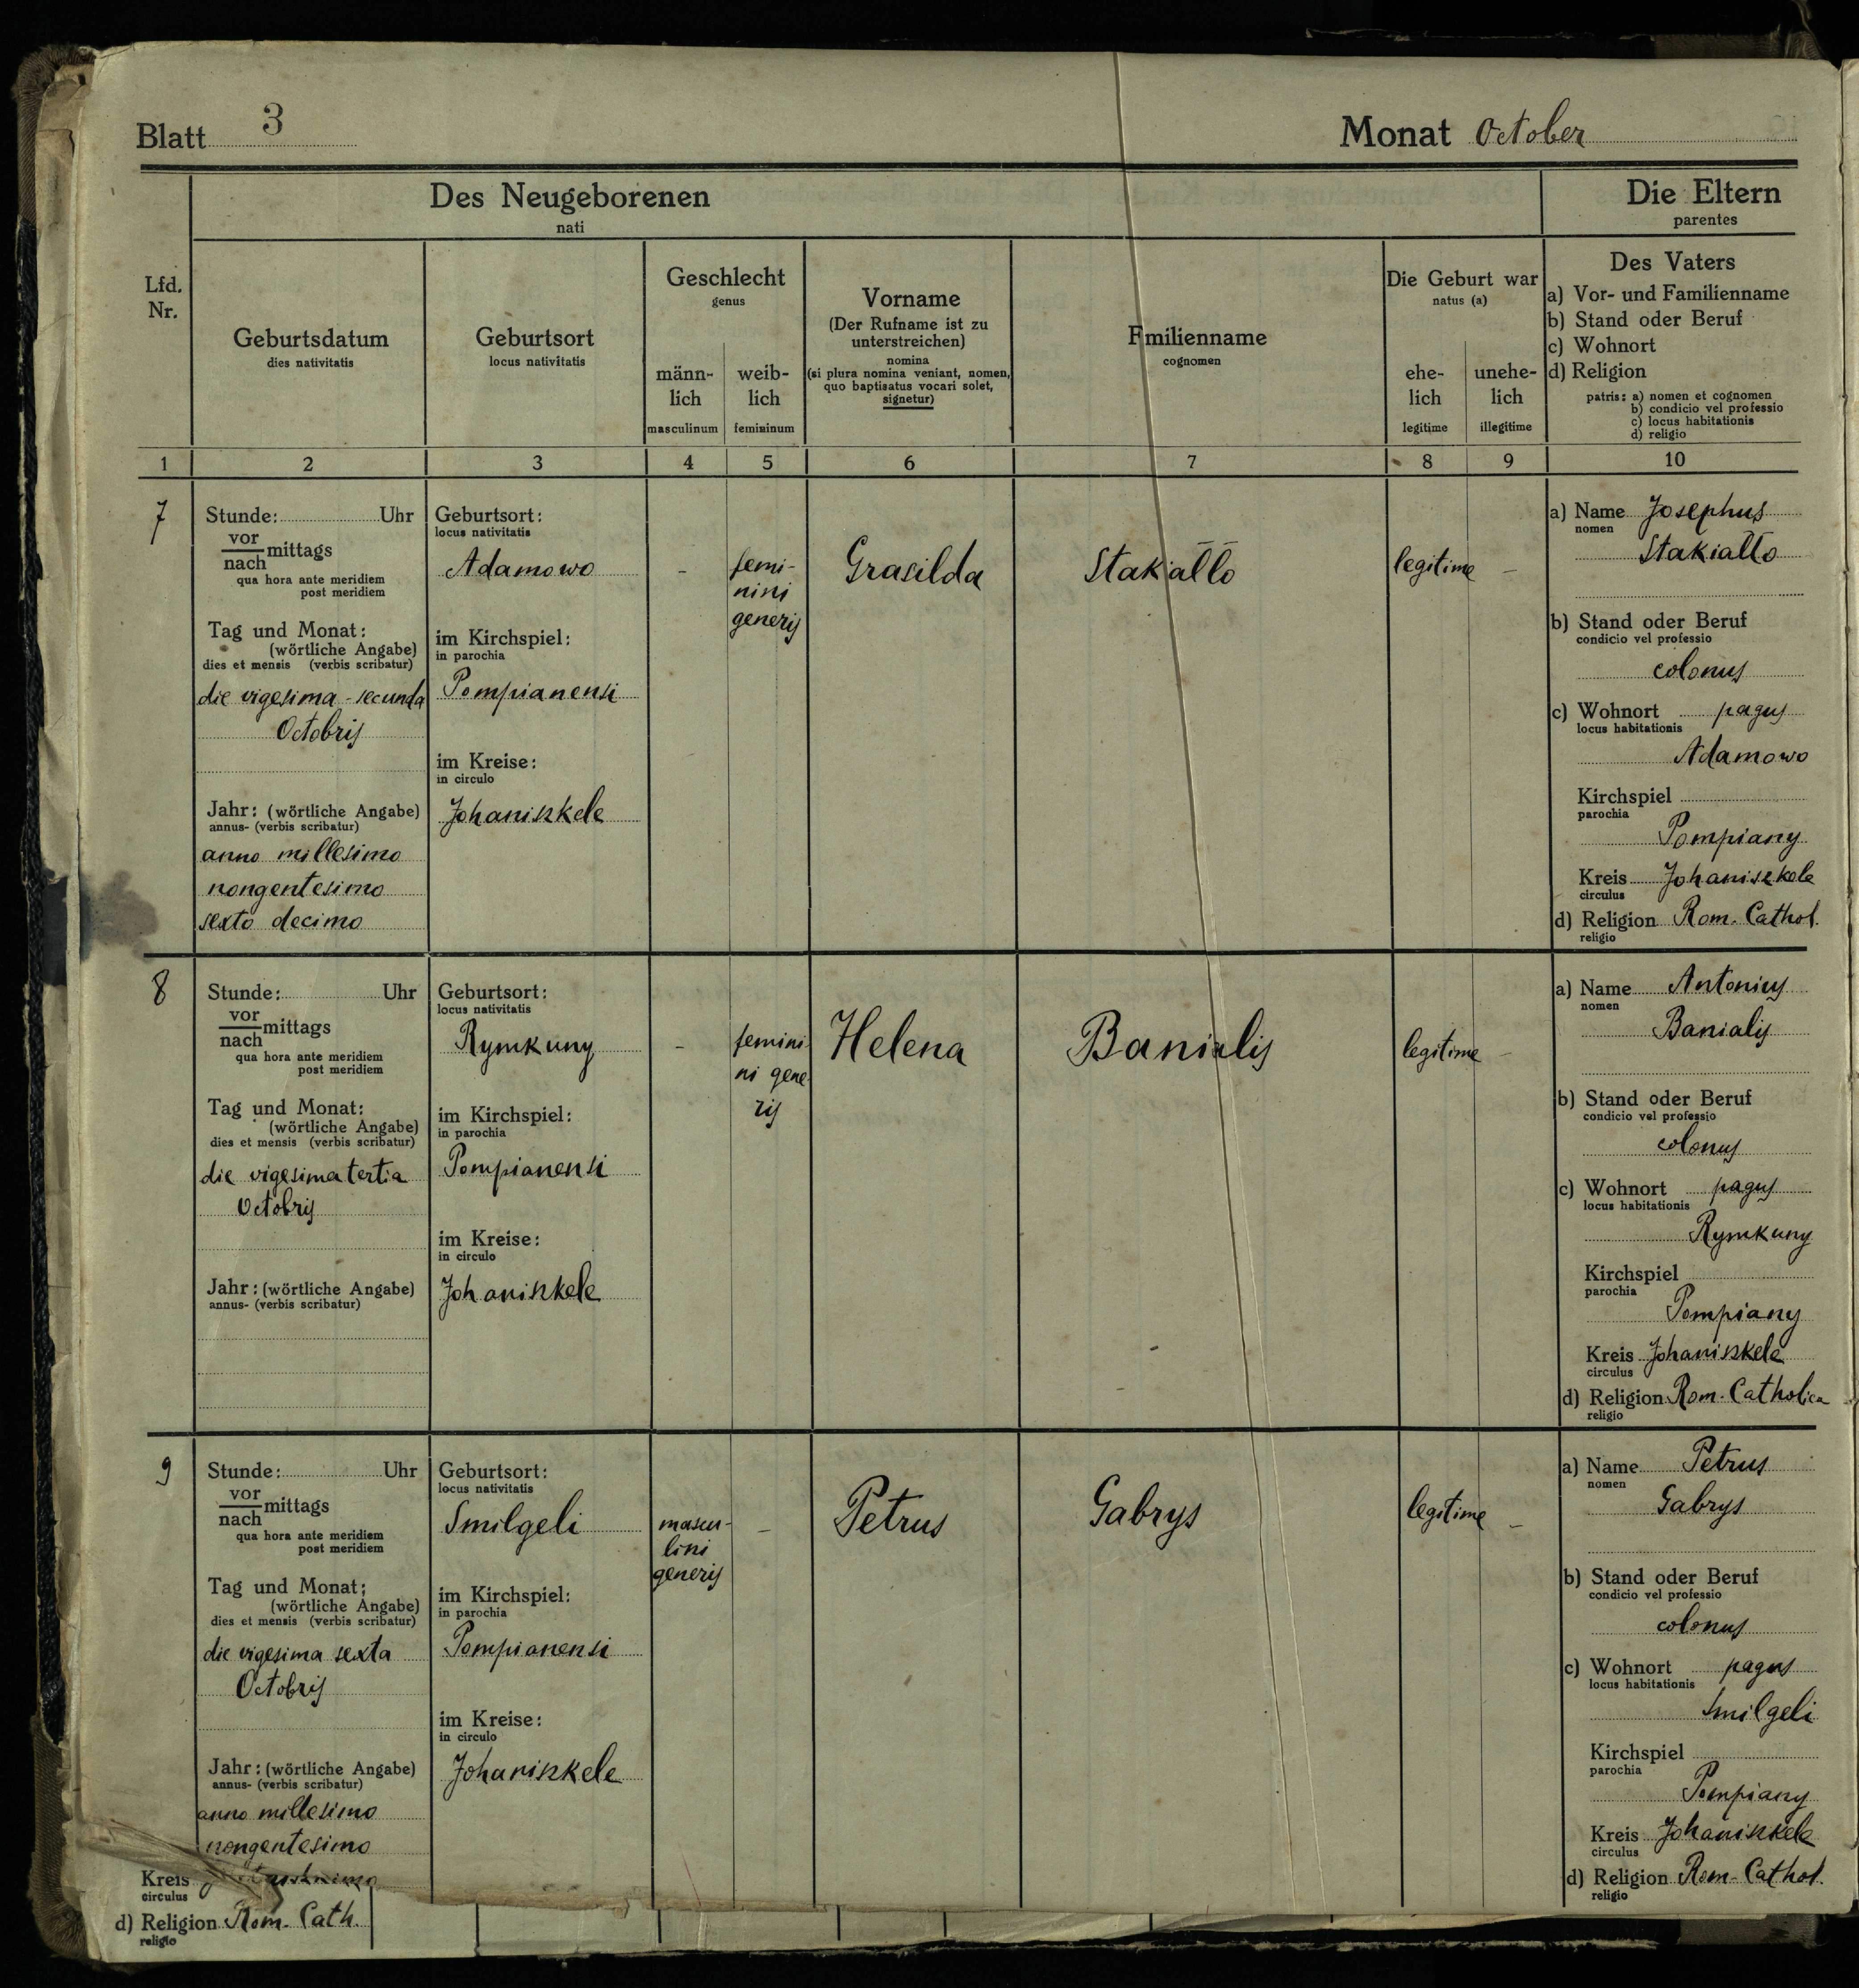 Blatt 3
Monat October
Des Neugeborenen
nati
Die Eltern
parentes
Lfd.
Nr.
Geburtsdatum
dies nativitatis
Geburtsort
locus nativitatis
Geschlecht
genus
männ-
lich
masculinum
weib-
lich
femininum
Vorname
(Der Rufname ist zu
unterstreichen)
nomina
(si plura nomina veniant, nomen,
quo baptisatus vocari solet,
signetur)
Fmilienname
cognomen
Die Geburt war
natus (a)
ehe-
lich
legitime
unehe-
lich
illegitime
Des Vaters
a) Vor- und Familienname
b) Stand oder Beruf
c) Wohnort
d) Religion
patris: a) nomen et cognomen
b) condicio vel professio
c) locus habitationis
d) religio
1 2 3 4 5 6 7 8 9 10
7
Stunde: Uhr
vor
nach mittags
qua hora ante meridiem
post meridiem
Tag und Monat:
(wörtliche Angabe)
dies et mensis (verbis scribatur)
die vigesima-secunda
Octobris
Jahr: (wörtliche Angabe)
annus- (verbis scribatur)
anno millesimo
nongentesimo
sexto decimo
Geburtsort:
locus nativitatis
Adamowo
im Kirchspiel:
in parochia
Pompianensi
im Kreise:
in circulo
Johaniszkele
-
femi-
nini
generis
Grasilda
Stakiałło
legitime -
a) Name Josephus
nomen
Stakiałło
b) Stand oder Beruf
condicio vel professio
colonus
c) Wohnort pagus
locus habitationis
Adamowo
Kirchspiel
parochia
Pompiany
Kreis Johaniszkele
circulus
d) Religion Rom. Cathol.
religio
8
Stunde: Uhr
vor
nach mittags
qua hora ante meridiem
post meridiem
Tag und Monat:
(wörtliche Angabe)
dies et mensis (verbis scribatur)
die vigesima tertia
Octobris
Jahr: (wörtliche Angabe)
annus- (verbis scribatur)
Geburtsort:
locus nativitatis
Rymkuny
im Kirchspiel:
in parochia
Pompianensi
im Kreise:
in circulo
Johaniszkele
-
femini
ni gene
ris
Helena
Banialis
legitime -
a) Name Antonius
nomen
Banialis
b) Stand oder Beruf
condicio vel professio
colonus
c) Wohnort pagus
locus habitationis
Rymkuny
Kirchspiel
parochia
Pompiany
Kreis Johaniszkele
circulus
d) Religion Rom. Catholica
religio
9
Stunde: Uhr
vor
nach mittags
qua hora ante meridiem
post meridiem
Tag und Monat:
(wörtliche Angabe)
dies et mensis (verbis scribatur)
die vigesima sexta
Octobris
Jahr: (wörtliche Angabe)
annus- (verbis scribatur)
anno millesimo
nongentesimo
Geburtsort:
locus nativitatis
Smilgeli
im Kirchspiel:
in parochia
Pompianensi
im Kreise:
in circulo
Johaniszkele
mascu-
lini
generis
-
Petrus
Gabrys
legitime -
a) Name Petrus
nomen
Gabrys
b) Stand oder Beruf
condicio vel professio
colonus
c) Wohnort pagus
locus habitationis
Smilgeli
Kirchspiel
parochia
Pompiany
Kreis Johaniszkele
circulus
d) Religion Rom. Cathol.
religio
Kreis
circulus
d) Religion Rom. Cath.
religio